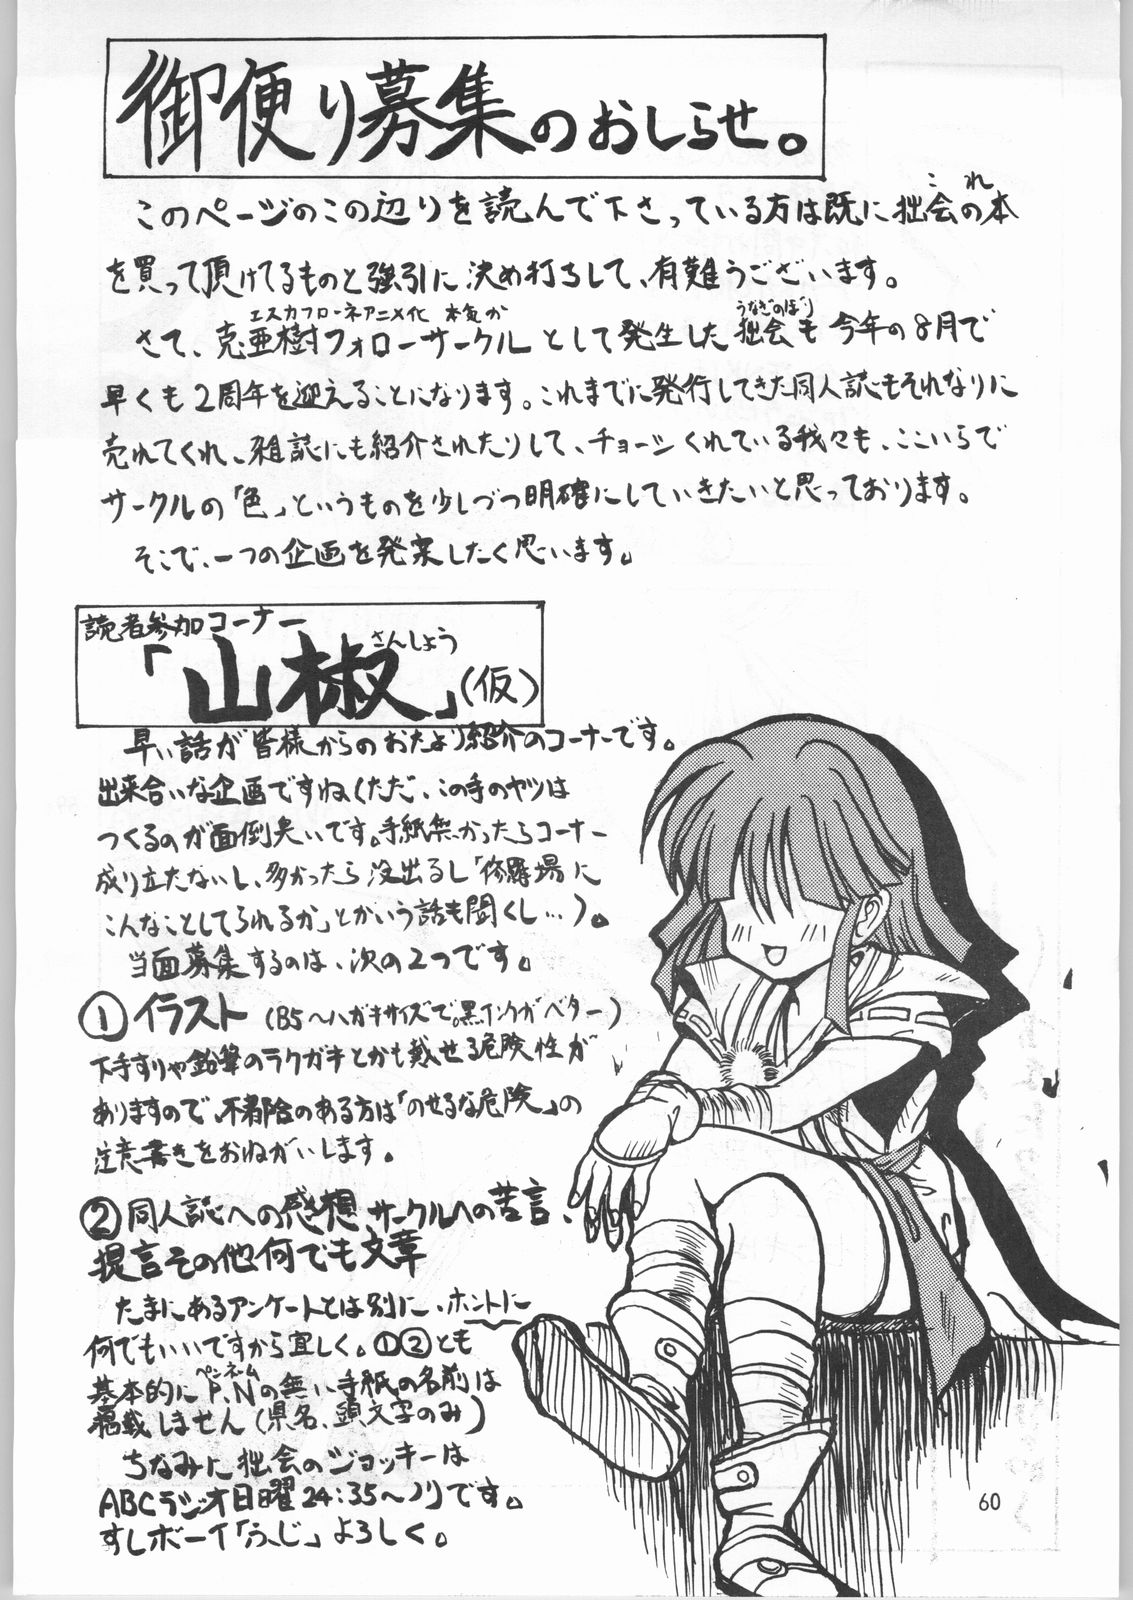 御便り募集のおしらせ。
このページのこの辺りを読んで下さっている方は既に拙会の本
これ
を買って頂けてるものと強引に決め打ちして、有難うございます。
エスカフローネアニメ化 本気か
うなぎのぼり
さて、克・亜樹フォローサークルとして発生した拙会も今年の8月で
早くも2周年を迎えることになります。これまでに発行してきた同人誌もそれなりに
売れてくれ、雑誌にも紹介されたりして、チョーシくれている我々も、ここいらで
サークルの「色」というものを少しづつ明確にしていきたいと思っております。
そこで、一つの企画を発案したく思います。
読者参加コーナー
さんしょう
「山椒」(仮)
早い話が皆様からのおたより紹介のコーナーです。
出来合いな企画ですね(ただ、この手のヤツは
つくるのが面倒臭いです。手紙無かったらコーナー
成り立たないし、多かったら没出るし「修羅場に
こんなことしてられるか」とかいう話も聞くし…)。
当面募集するのは、次の2つです。
①イラスト (B5〜ハガキサイズで。黒インクがベター)
下手すりゃ鉛筆のラクガキとかも載せる危険性が
ありますので、不都合のある方は「のせるな危険」の
注意書きをおねがいします。
②同人誌への感想、サークルへの苦言、
提言その他何でも文章
たまにあるアンケートとは別に、ホントに
何でもいいですから宜しく。①②とも
ペンネーム
基本的にP.Nの無い手紙の名前は
掲載しません(県名、頭文字のみ)
ちなみに拙会のジョッキーは
ABCラジオ日曜24:35〜ノリです。
すしボーイ「ふじ」よろしく。
60